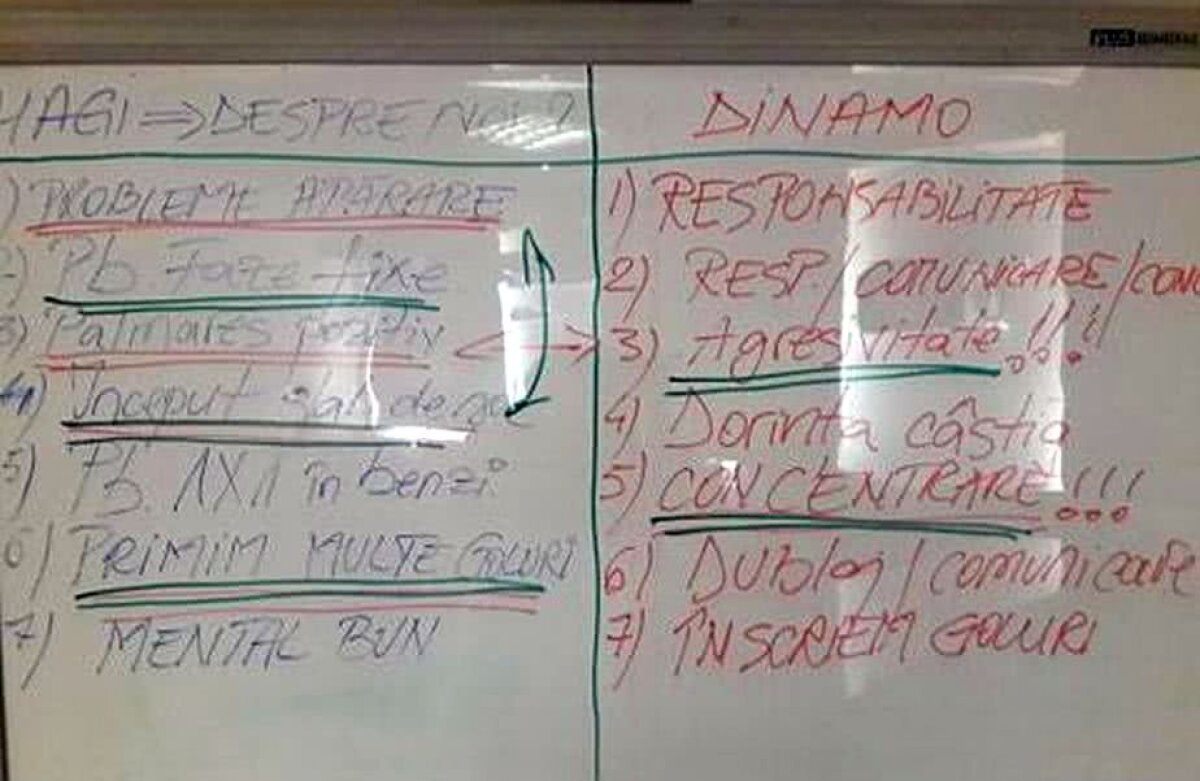 HAGI ⇒ DESPRE NOI?
1) PROBLEME APĂRARE
2) Pb. Faze fixe
3) Palmares pozitiv
4) Început slab de
5) Pb. în benzi
6) PRIMIM MULTE GOLURI
7) MENTAL BUN
DINAMO
1) RESPONSABILITATE
2) RESP./COMUNICARE/
3) Agresivitate!!!!
4) Dorința câștig
5) CONCENTRARE!!!
6) Dublaj/comunicare
7) ÎNSCRIEM GOLURI